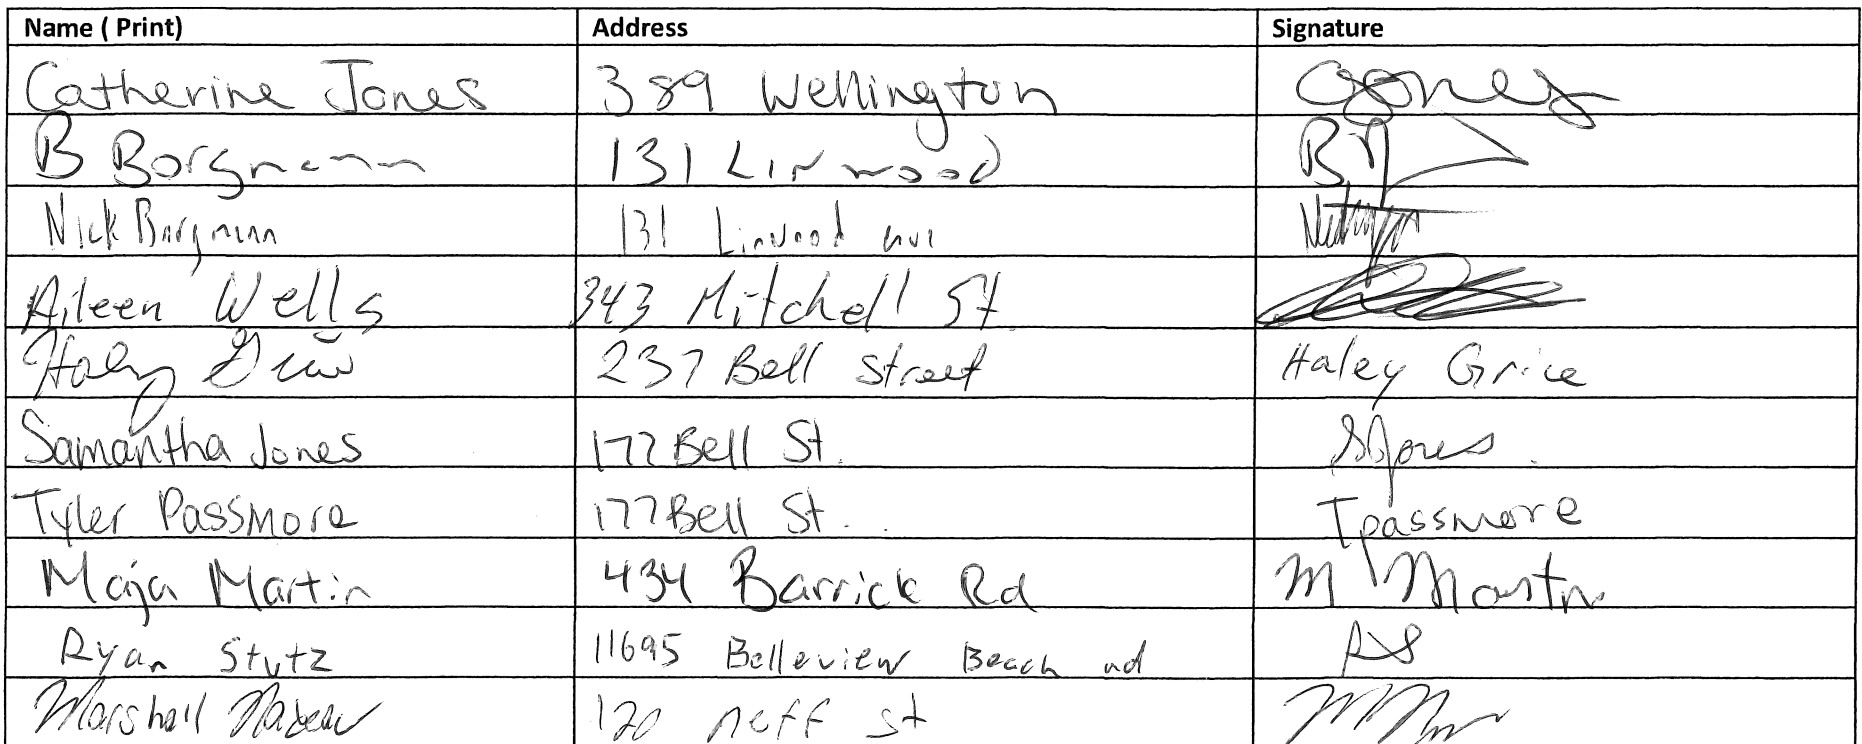 Name ( Print) Address Signature
Catherine Jones 389 Wellington CJones
B Borgmann 131 Linwood
Nick Borgmann 131 Linwood ave
Aileen Wells 343 Mitchell St
Haley Grice 237 Bell street Haley Grice
Samantha Jones 177 Bell St. SJones
Tyler Passmore 177 Bell St. Tpassmore
Maja Martin 434 Barrick Rd M Martin
Ryan Stutz 11695 Belleview Beach rd RS
Marshall 120 neff st